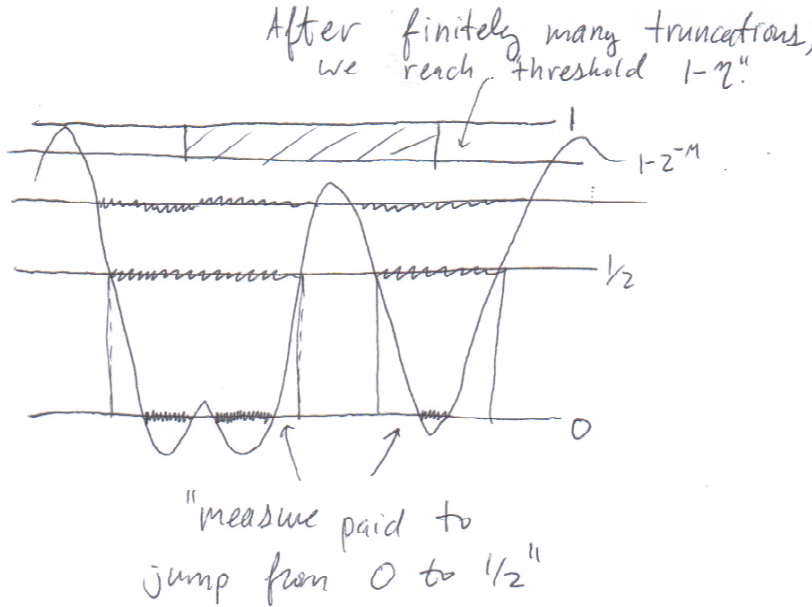 After finitely many truncations,
we reach "threshold 1-η".
1
1-2^{-M}
1/2
0
"measure paid to
jump from 0 to 1/2"